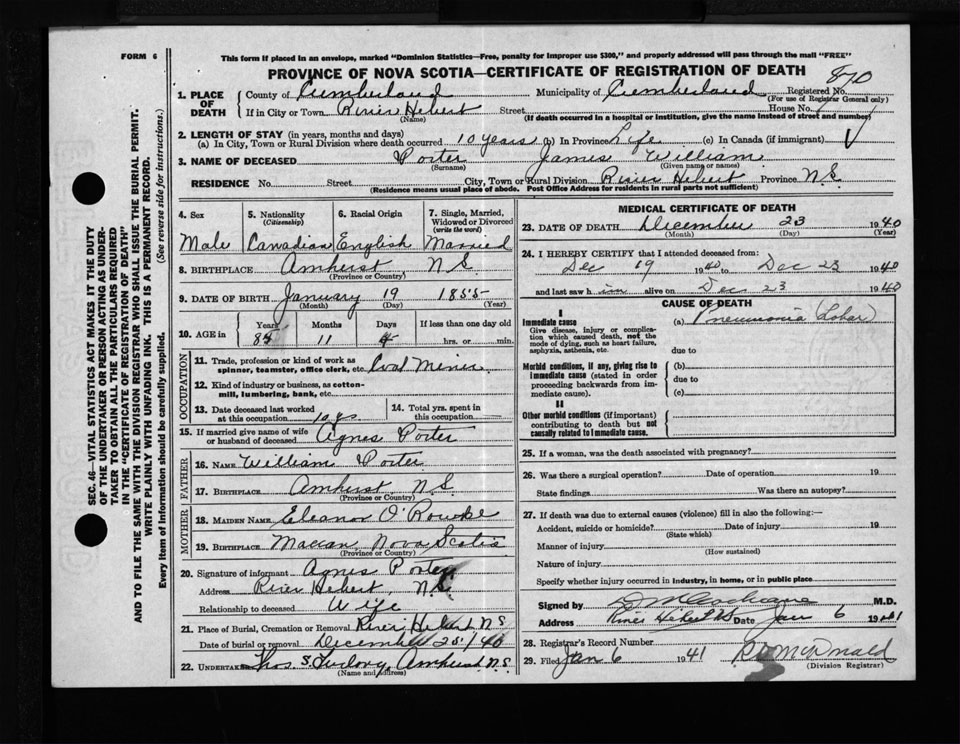 FORM 6
This form if placed in an envelope, marked "Dominion Statistics—Free, penalty for improper use $300," and properly addressed will pass through the mail "FREE"
PROVINCE OF NOVA SCOTIA—CERTIFICATE OF REGISTRATION OF DEATH
870
1. PLACE OF DEATH County of Cumberland Municipality of Cumberland Registered No.
(For use of Registrar General only)
If in City or Town River Hebert Street House No.
(Name) (If death occurred in a hospital or institution, give the name instead of street and number)
2. LENGTH OF STAY (in years, months and days)
(a) In City, Town or Rural Division where death occurred 10 years (b) In Province Life (c) In Canada (if immigrant)
3. NAME OF DECEASED Porter James William
(Surname) (Given name or names)
RESIDENCE No. Street City, Town or Rural Division River Hebert Province N.S.
(Residence means usual place of abode. Post Office Address for residents in rural parts not sufficient)
4. Sex 5. Nationality (Citizenship) 6. Racial Origin 7. Single, Married, Widowed or Divorced (write the word)
Male Canadian English Married
8. BIRTHPLACE Amherst, N.S.
(Province or Country)
9. DATE OF BIRTH January 19 1855
(Month) (Day) (Year)
10. AGE in Years Months Days If less than one day old
85 11 4 hrs. or min.
OCCUPATION
11. Trade, profession or kind of work as spinner, teamster, office clerk, etc. Coal Miner
12. Kind of industry or business, as cotton-mill, lumbering, bank, etc.
13. Date deceased last worked at this occupation 14. Total yrs. spent in this occupation
15. If married give name of wife or husband of deceased Agnes Porter
FATHER
16. NAME William Porter
17. BIRTHPLACE Amherst, N.S.
(Province or Country)
MOTHER
18. MAIDEN NAME Eleanor O'Rourke
19. BIRTHPLACE Maccan Nova Scotia
(Province or Country)
20. Signature of informant Agnes Porter
Address River Hebert, N.S.
Relationship to deceased Wife
21. Place of Burial, Cremation or Removal River Hebert N.S
Date of burial or removal December 25/40
22. UNDERTAKER Thos S. Furlong, Amherst N.S.
(Name and address)
MEDICAL CERTIFICATE OF DEATH
23. DATE OF DEATH December 23 1940
(Month) (Day) (Year)
24. I HEREBY CERTIFY that I attended deceased from:
Dec 19 1940 to Dec 23 1940
and last saw him alive on Dec 23 1940
CAUSE OF DEATH
I
Immediate cause (a) Pneumonia (Lobar)
Give disease, injury or complication which caused death, not the mode of dying, such as heart failure, asphyxia, asthenia, etc.
due to
Morbid conditions, if any, giving rise to immediate cause (stated in order proceeding backwards from immediate cause). (b)
due to
(c)
II
Other morbid conditions (if important) contributing to death but not causally related to immediate cause.
25. If a woman, was the death associated with pregnancy?
26. Was there a surgical operation? Date of operation 19
State findings Was there an autopsy?
27. If death was due to external causes (violence) fill in also the following:—
Accident, suicide or homicide? Date of injury 19
(State which)
Manner of injury
(How sustained)
Nature of injury
Specify whether injury occurred in industry, in home, or in public place
Signed by D M Cochrane M.D.
Address River Hebert NS Date Jan 6 1941
28. Registrar's Record Number
29. Filed Jan 6 1941
(Division Registrar)
SEC. 46—VITAL STATISTICS ACT MAKES IT THE DUTY
OF THE UNDERTAKER OR PERSON ACTING AS UNDER-
TAKER TO OBTAIN ALL THE PARTICULARS REQUIRED
IN THE "CERTIFICATE OF REGISTRATION OF DEATH"
AND TO FILE THE SAME WITH THE DIVISION REGISTRAR WHO SHALL ISSUE THE BURIAL PERMIT.
WRITE PLAINLY WITH UNFADING INK. THIS IS A PERMANENT RECORD.
Every item of information should be carefully supplied. (See reverse side for instructions.)